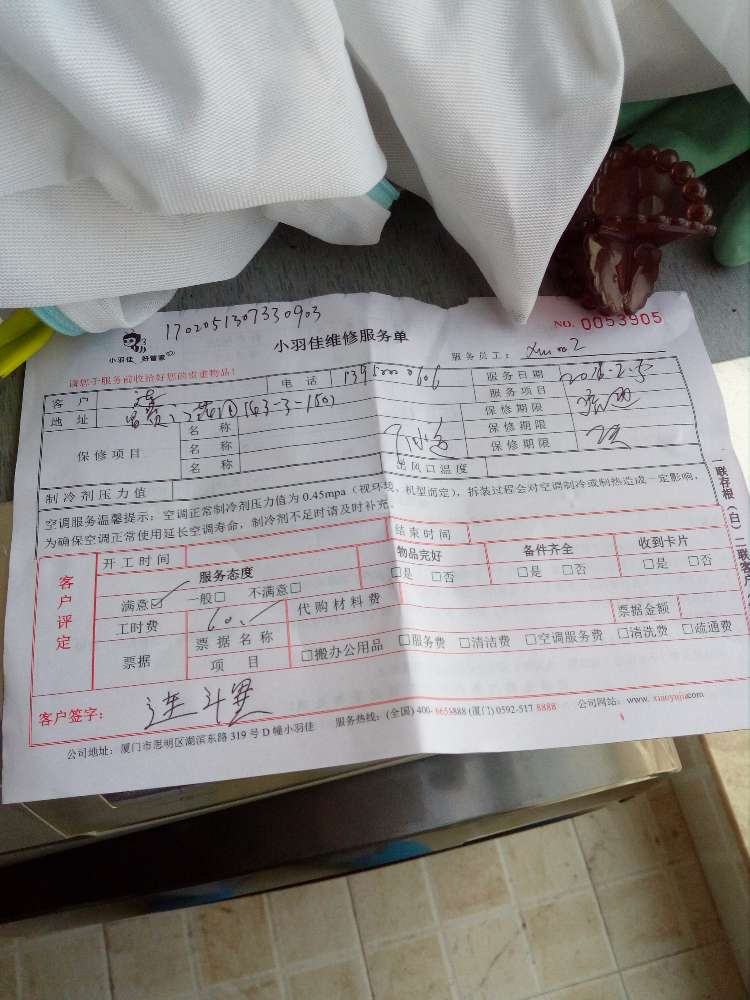 1702051307330903
小羽佳 好管家
小羽佳维修服务单
NO. 0053905
请您于服务前收拾好您的贵重物品!
服务员工:
客户
电话
服务日期
地址
服务项目
保修项目
名称
保修期限
名称
保修期限
名称
保修期限
制冷剂压力值
出风口温度
空调服务温馨提示:空调正常制冷剂压力值为 0.45mpa(视环境、机型而定),拆装过程会对空调制冷或制热造成一定影响,
为确保空调正常使用延长空调寿命,制冷剂不足时请及时补充。
客户评定
开工时间
结束时间
服务态度
物品完好
备件齐全
收到卡片
满意☑ 一般□ 不满意□
□是 □否
□是 □否
□是 □否
工时费
60.
代购材料费
票据
票据名称
票据金额
项目
□搬办公用品 □服务费 □清洁费 □空调服务费 □清洗费 □疏通费
客户签字:
公司地址:厦门市思明区湖滨东路 319 号 D 幢小羽佳 服务热线:(全国) 400-8658888 (厦门) 0592-517 8888 公司网站:www. xiaoyujia.com